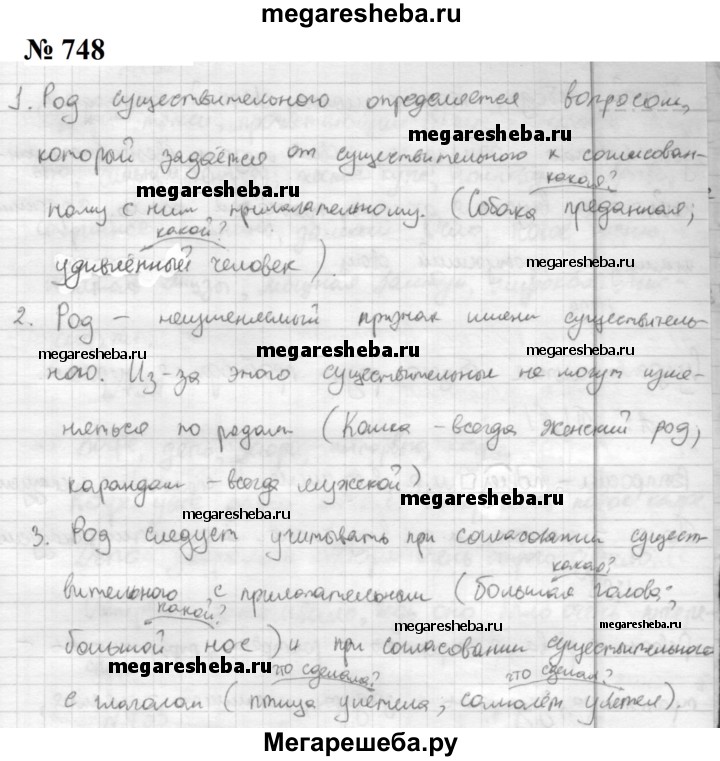 megaresheba.ru
№ 748
1. Род существительного определяется вопросом,
megaresheba.ru
который задаётся от существительного к согласован-
какая?
megaresheba.ru
ному с ним прилагательному. (Собака преданная;
какой?
удивлённый человек).
megaresheba.ru
2. Род – неизменяемый признак имени существитель-
megaresheba.ru megaresheba.ru megaresheba.ru
ного. Из-за этого существительные не могут изме-
няться по родам (Кошка – всегда женский род,
карандаш – всегда мужской).
megaresheba.ru
megaresheba.ru
3. Род следует учитывать при согласовании сущест-
какая?
вительного с прилагательным (большая голова;
megaresheba.ru
какой?
megaresheba.ru
большой нос) и при согласовании существительного
megaresheba.ru
что сделала? что сделал?
с глаголом (птица улетела, самолёт улетел).
megaresheba.ru
Мегарешеба.ру